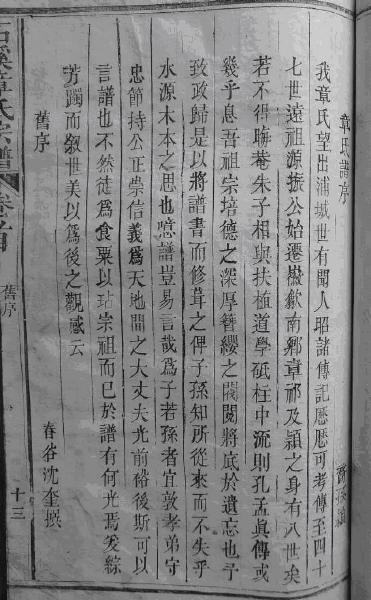 章氏譜序
我章氏望出浦城世有聞人昭諸傳記歷歷可考傳至四十
七世遠祖源振公始遷徽歙南鄉章祁及潁之身有八世矣
若不得晦菴朱子相與扶植道學砥柱中流則孔孟眞傳或
幾乎息吾祖宗培德之深厚簪纓之閥閱將底於遺忘也予
致政歸是以將譜書而修葺之俾子孫知所從來而不失乎
水源木本之思也噫譜豈易言哉爲子若孫者宜敦孝弟守
忠節持公正崇信義爲天地間之大丈夫光前裕後斯可以
言譜也不然徒爲食粟以玷宗祖而已於譜有何光焉爰綜
芳躅而敘世美以爲後之觀感云
舊序
春谷沈奎撰
石溪章氏宗譜
卷首
舊序
十三